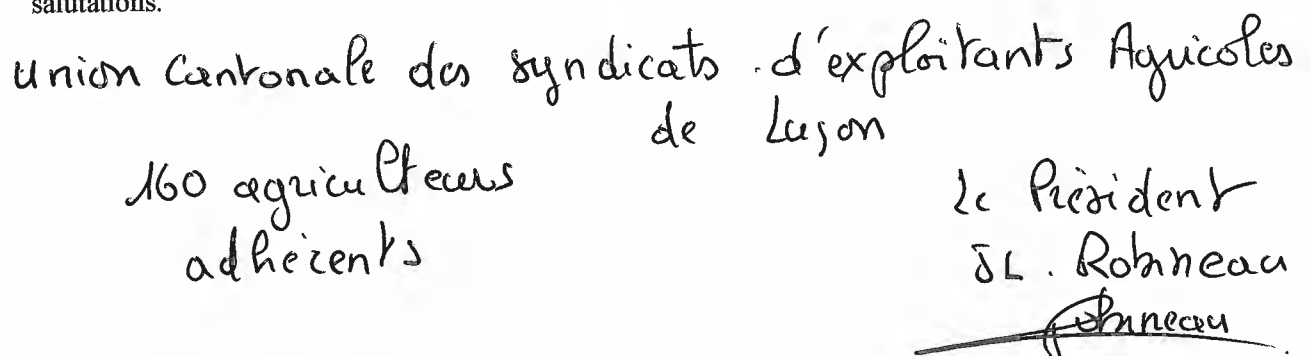 salutations.
Union Cantonale des syndicats d'exploitants Agricoles
de Luçon
160 agriculteurs
adhérents
Le Président
JL. Robineau
Robineau